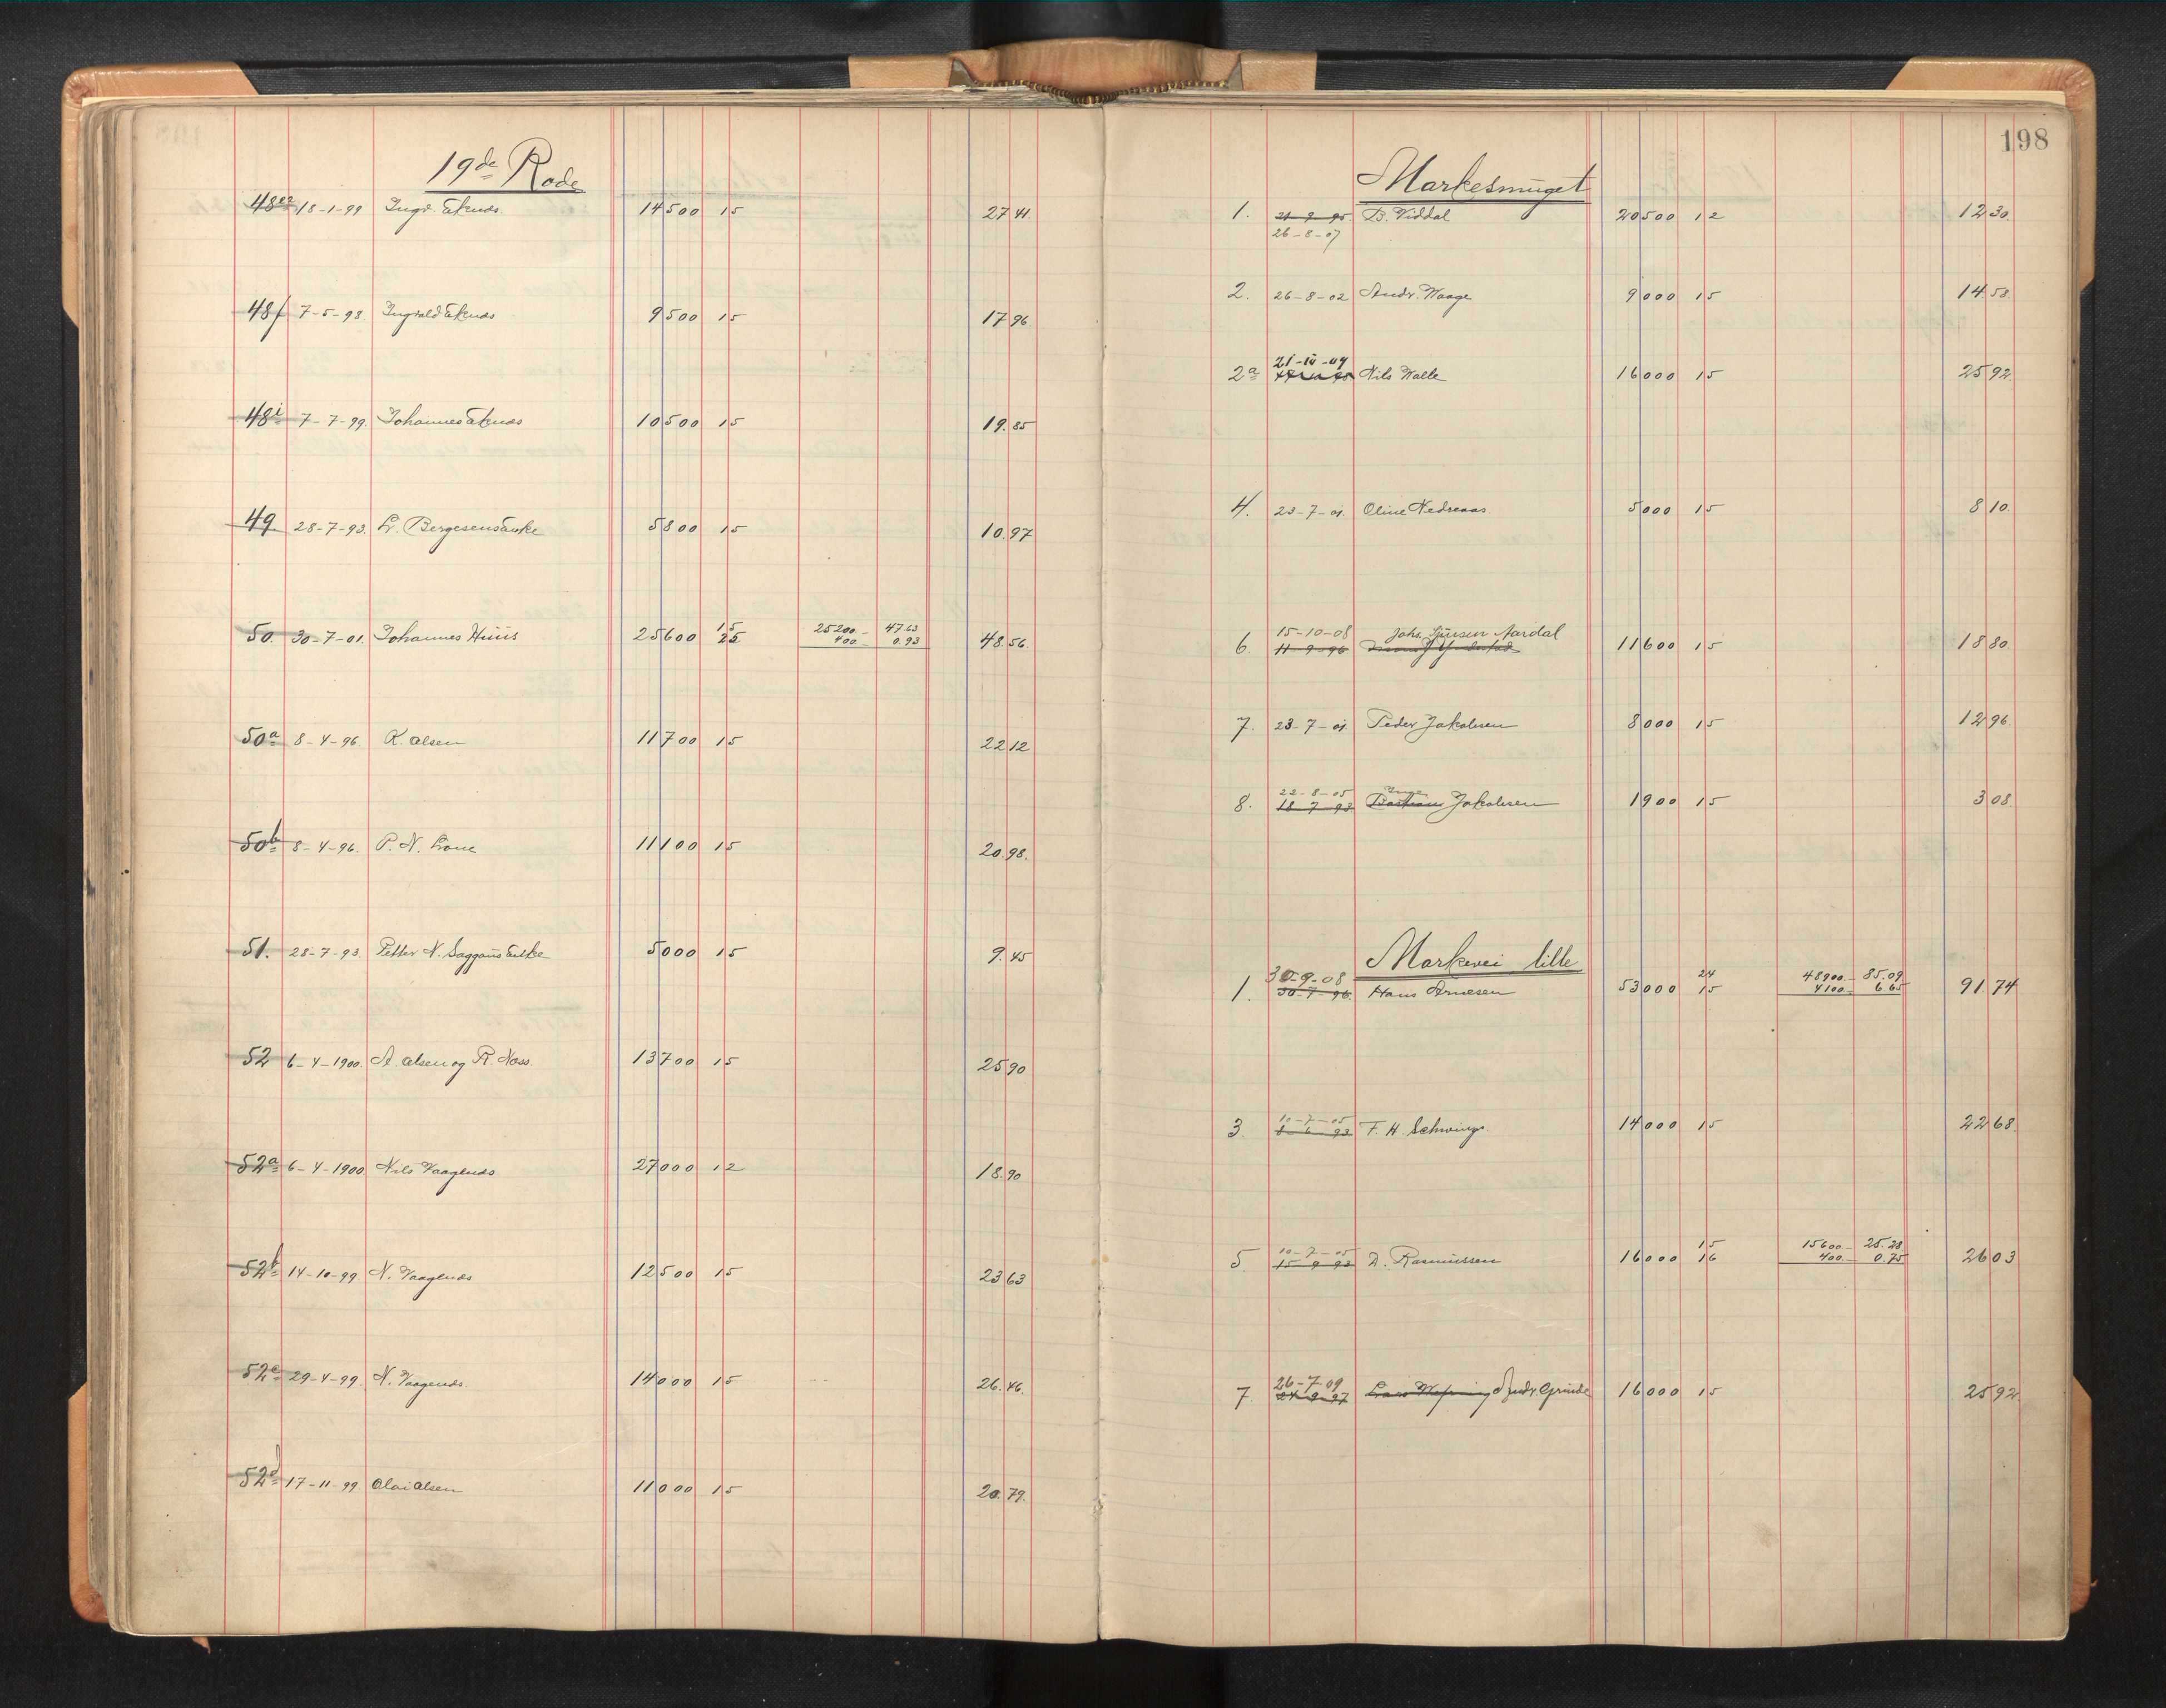 19de Rode
48e2 18-1-99 Ingv. Eknes. 14500 15 27 41.
48f 7-5-98. Ingvald Eknes 9500 15 17 96
48i 7-7-99. Johannes Eknes 10500 15 19. 85
49 28-7-93. L. Bergesens Enke 5800 15 10. 97
50. 30-7-01. Johannes Huus 25600 15 25 25200.- 47.63 400.- 0.93 48. 56.
50a 8-4-96. R. Olsen 11700 15 22 12
50b 8-4-96. P. N. Lone 11100 15 20. 98.
51. 28-7-93. Petter N. Saggaus Enke 5000 15 9. 45
52 6-4-1900. A. Olsen og R. Næss. 13700 15 25 90
52a 6-4-1900 Nils Vaagenes 27000 12 18. 90
52b 14-10-99 N. Vaagenes 12500 15 23 63
52c 29-4-99. N. Vaagenes. 14000 15 26. 46.
52d 17-11-99 Olai Olsen 11000 15 20. 79.
198
Markesmuget
1. 21-9-95. B. Viddal 20500 12 12 30.
26-8-07
2. 26-8-02 Andr. Waage 9000 15 14 58.
21-10-09
2a Nils Walle 16000 15 25 92
4. 23-7-01. Oline Nedreaas. 5000 15 8 10.
15-10-08 Johs. Jönsen Aardal
6. 11-9-96 11600 15 18 80
7. 23-7-01. Peder Jakobsen 8000 15 12 96
22-8-05 Inger
8. 18-7-93 Bastians Jakobsen 1900 15 3 08
Markevei lille
30-9-08 24 48900.- 85.09
1. 30-7-96. Hans Arnesen 53000 15 4100.- 6.65 91. 74
10-7-05
3. 8-6-93 F. H. Schwings. 14000 15 22 68.
10-7-05 15 15600.- 25.28
5. 15-9-93 D. Rasmussen 16000 16 400.- 0.75 26 03
26-7-09
7. 24-9-97 Andr. Grinde 16000 15 25 92.